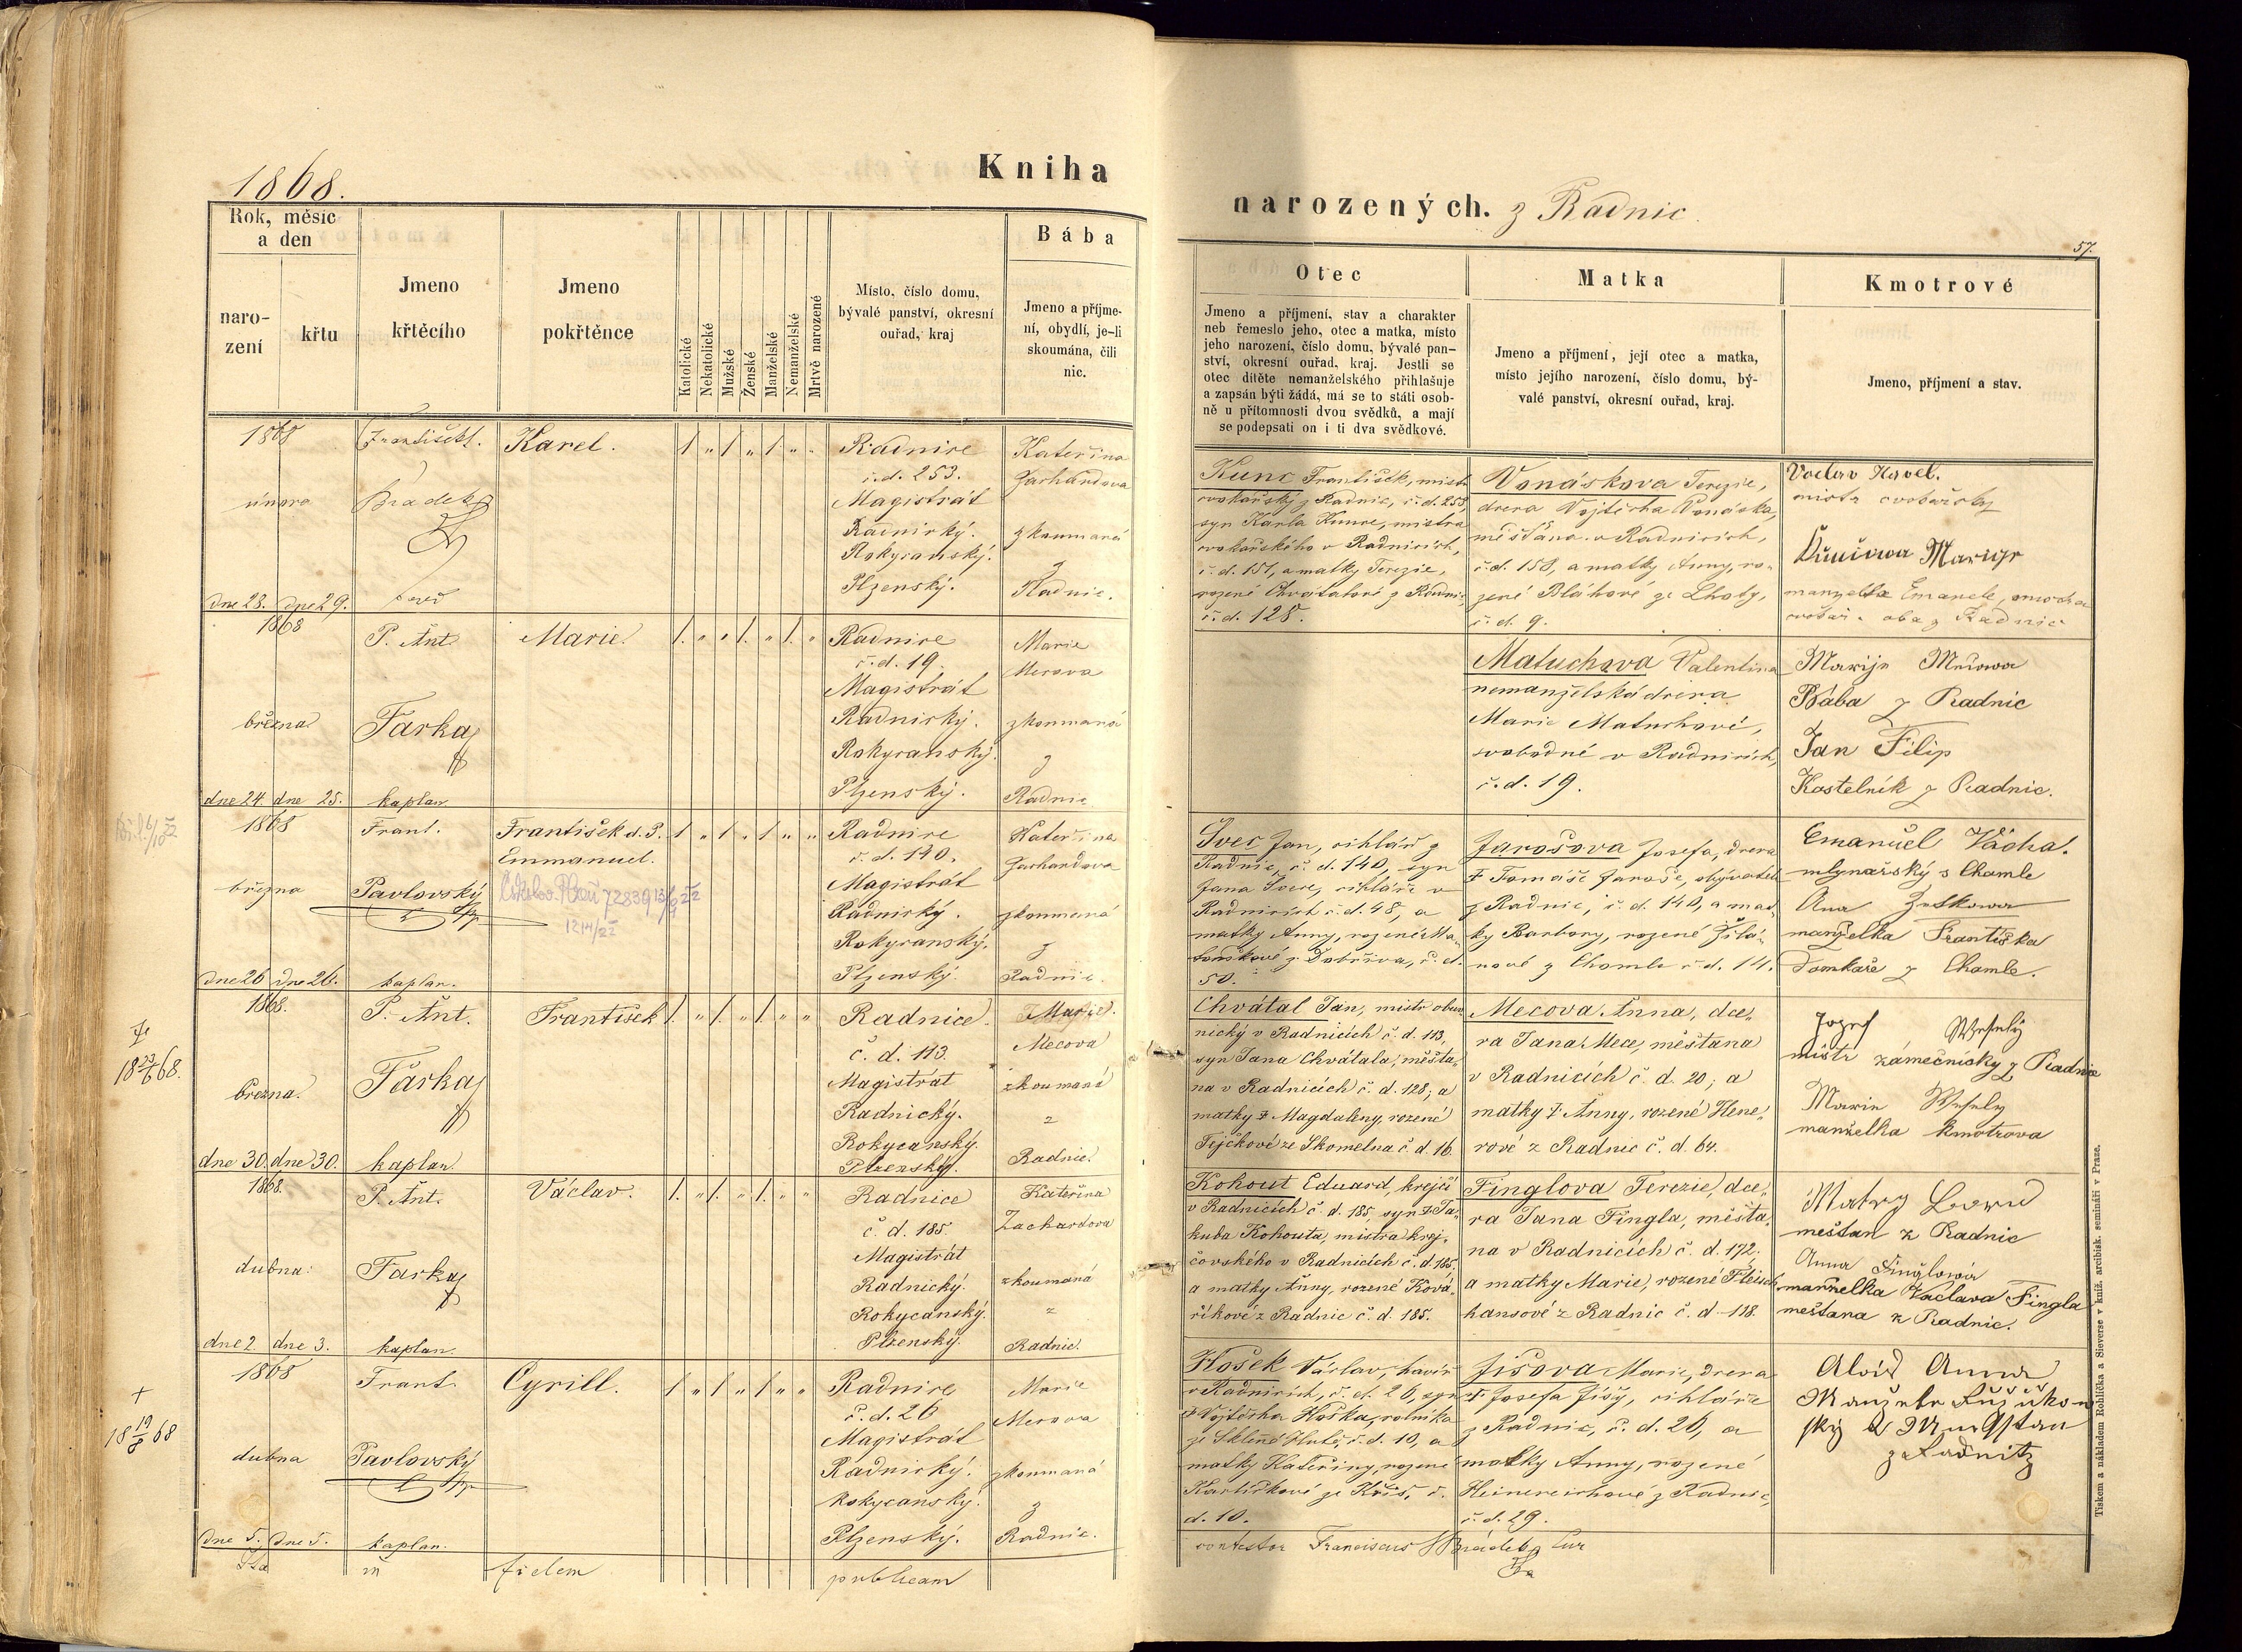 1868.
Kniha
narozených. z Radnic.
57.
Rok, měsíc
a den
naro-
zení
křtu
Jmeno
křtěcího
Jmeno
pokřtěnce
Katolické
Nekatolické
Mužské
Ženské
Manželské
Nemanželské
Mrtvě narozené
Místo, číslo domu,
bývalé panství, okresní
ouřad, kraj
Bába
Jmeno a příjme-
ní, obydlí, je-li
skoumána, čili
nic.
Otec
Jmeno a příjmení, stav a charakter
neb řemeslo jeho, otec a matka, místo
jeho narození, číslo domu, bývalé pan-
ství, okresní ouřad, kraj. Jestli se
otec dítěte nemanželského přihlašuje
a zapsán býti žádá, má se to státi osob-
ně u přítomnosti dvou svědků, a mají
se podepsati on i ti dva svědkové.
Matka
Jmeno a příjmení, její otec a matka,
místo jejího narození, číslo domu, bý-
valé panství, okresní ouřad, kraj.
Kmotrové
Jmeno, příjmení a stav.
1868
února
dne 28. dne 29.
František
Bradek
Karel.
1 „ 1 „ 1 „ „
Radnice
č. d. 253.
Magistrát
Radnický.
Rokycanský.
Plzenský.
Kateřina
Zachardova
zkoumaná
z
Radnic.
Kunc František, mistr
cvokařský z Radnic, č. d. 253,
syn Karla Kunce, mistra
cvokařského v Radnicích,
č. d. 151, a matky Terezie,
rozené Chvátalové z Radnic,
č. d. 128.
Vonáskova Terezie,
dcera Vojtěcha Vonáska,
měšťana v Radnicích,
č. d. 158, a matky Anny, ro-
zené Bláhové ze Lhoty,
č. d. 9.
Vaclav Havel.
mistr cvokařsky
Marige
manzelka Emanele,
oba z Radnic
1868
března
dne 24. dne 25.
P. Ant.
Farka
kaplan.
Marie.
1. „ „ 1. „ 1. „
Radnice
č. d. 19.
Magistrát
Radnický.
Rokycanský.
Plzenský.
Marie
Mecova
zkoumaná
z
Radnic
Matuchova Valentina
nemanželská dcera
Marie Matuchové,
svobodné v Radnicích,
č. d. 19.
Marije Mecowa
Bába z Radnic
Jan Filip
Kostelník z Radnic.
1868
března
dne 26. dne 26.
Frant.
Pavlovský
kaplan.
František d. P.
Emmanuel.
1 „ 1 „ 1 „ „
Radnice
č. d. 140.
Magistrát
Radnický.
Rokycanský.
Plzenský.
Kateřina
Zachardova
zkoumaná
z
Radnic.
Švec Jan, cihlář z
Radnic, č. d. 140, syn
Jana Švece, cihláře v
Radnicích č. d. 48, a
matky Anny, rozené Ma-
touškové z Dobříva, č. d.
50.
Jarošova Josefa, dcera
† Tomáše Jaroše, obyvatele
z Radnic, č. d. 140, a mat-
ky Barbory, rozené Žilá-
nové z Chomle č. d. 14.
Emanuel Vácha.
mlynařský s Chomle
Ana Zuskowa
manzelka Frantiska
Domkaře z Chomle.
† 18 23/6 68.
1868.
března.
dne 30. dne 30.
P. Ant.
Farka
kaplan.
František
1. „ 1. „ 1. „ „
Radnice.
č. d. 113.
Magistrát
Radnický.
Rokycanský.
Plzenský.
Marie.
Mecova
zkoumaná
z
Radnic.
Chvátal Jan, mistr obuv-
nický v Radnicích č. d. 113,
syn Jana Chvátala, měšťa-
na v Radnicích č. d. 128, a
matky † Magdaleny, rozené
Fejčkové ze Skomelna č. d. 16.
Mecova Anna, dce-
ra Jana Mece, měšťana
v Radnicích č. d. 20, a
matky † Anny, rozené Hene-
rové z Radnic č. d. 64.
Jozef Wesely
mistr zámečnicky z Radnic
Marie Wesely
manželka kmotrova
1868.
dubna.
dne 2. dne 3.
P. Ant.
Farka
kaplan.
Václav.
1. „ 1. „ 1. „ „
Radnice
č. d. 185.
Magistrát
Radnický.
Rokycanský.
Plzenský.
Kateřina
Zachardova
zkoumaná
z
Radnic.
Kohout Eduard, krejčí
v Radnicích č. d. 185, syn † Ja-
kuba Kohouta, mistra krej-
čovského v Radnicích č. d. 185,
a matky Anny, rozené Ková-
říkové z Radnic č. d. 185.
Finglova Terezie, dce-
ra Jana Fingla, měšťa-
na v Radnicích č. d. 172,
a matky Marie, rozené Fleisch-
hansové z Radnic č. d. 118.
mešťan z Radnic
Anna Finglowa
manzelka Vaclava Fingla
mešťana z Radnic.
† 18 19/8 68
1868
dubna
dne 5. dne 5.
Frant.
Pavlovský
kaplan.
Cyrill.
1 „ 1 „ 1 „ „
Radnice
č. d. 26
Magistrát
Radnický.
Rokycanský.
Plzenský.
Marie
Mecova
zkoumaná
z
Radnic.
Hošek Václav, havíř
v Radnicích, č. d. 26, syn
† Vojtěcha Hoška, rolníka
ze Sklenné Hutě, č. d. 10, a
matky Kateřiny, rozené
č.
d. 10.
Jíšova Marie, dcera
† Josefa Jíšy, cihláře
z Radnic, č. d. 26, a
matky Anny, rozené
z Radnic,
č. d. 29.
z Ladnitz
Ita in fidem publicam contestor Franciscus Brádek
Tiskem a nákladem Rohlíčka a Sieverse v kníž. arcibisk. semináři v Praze.